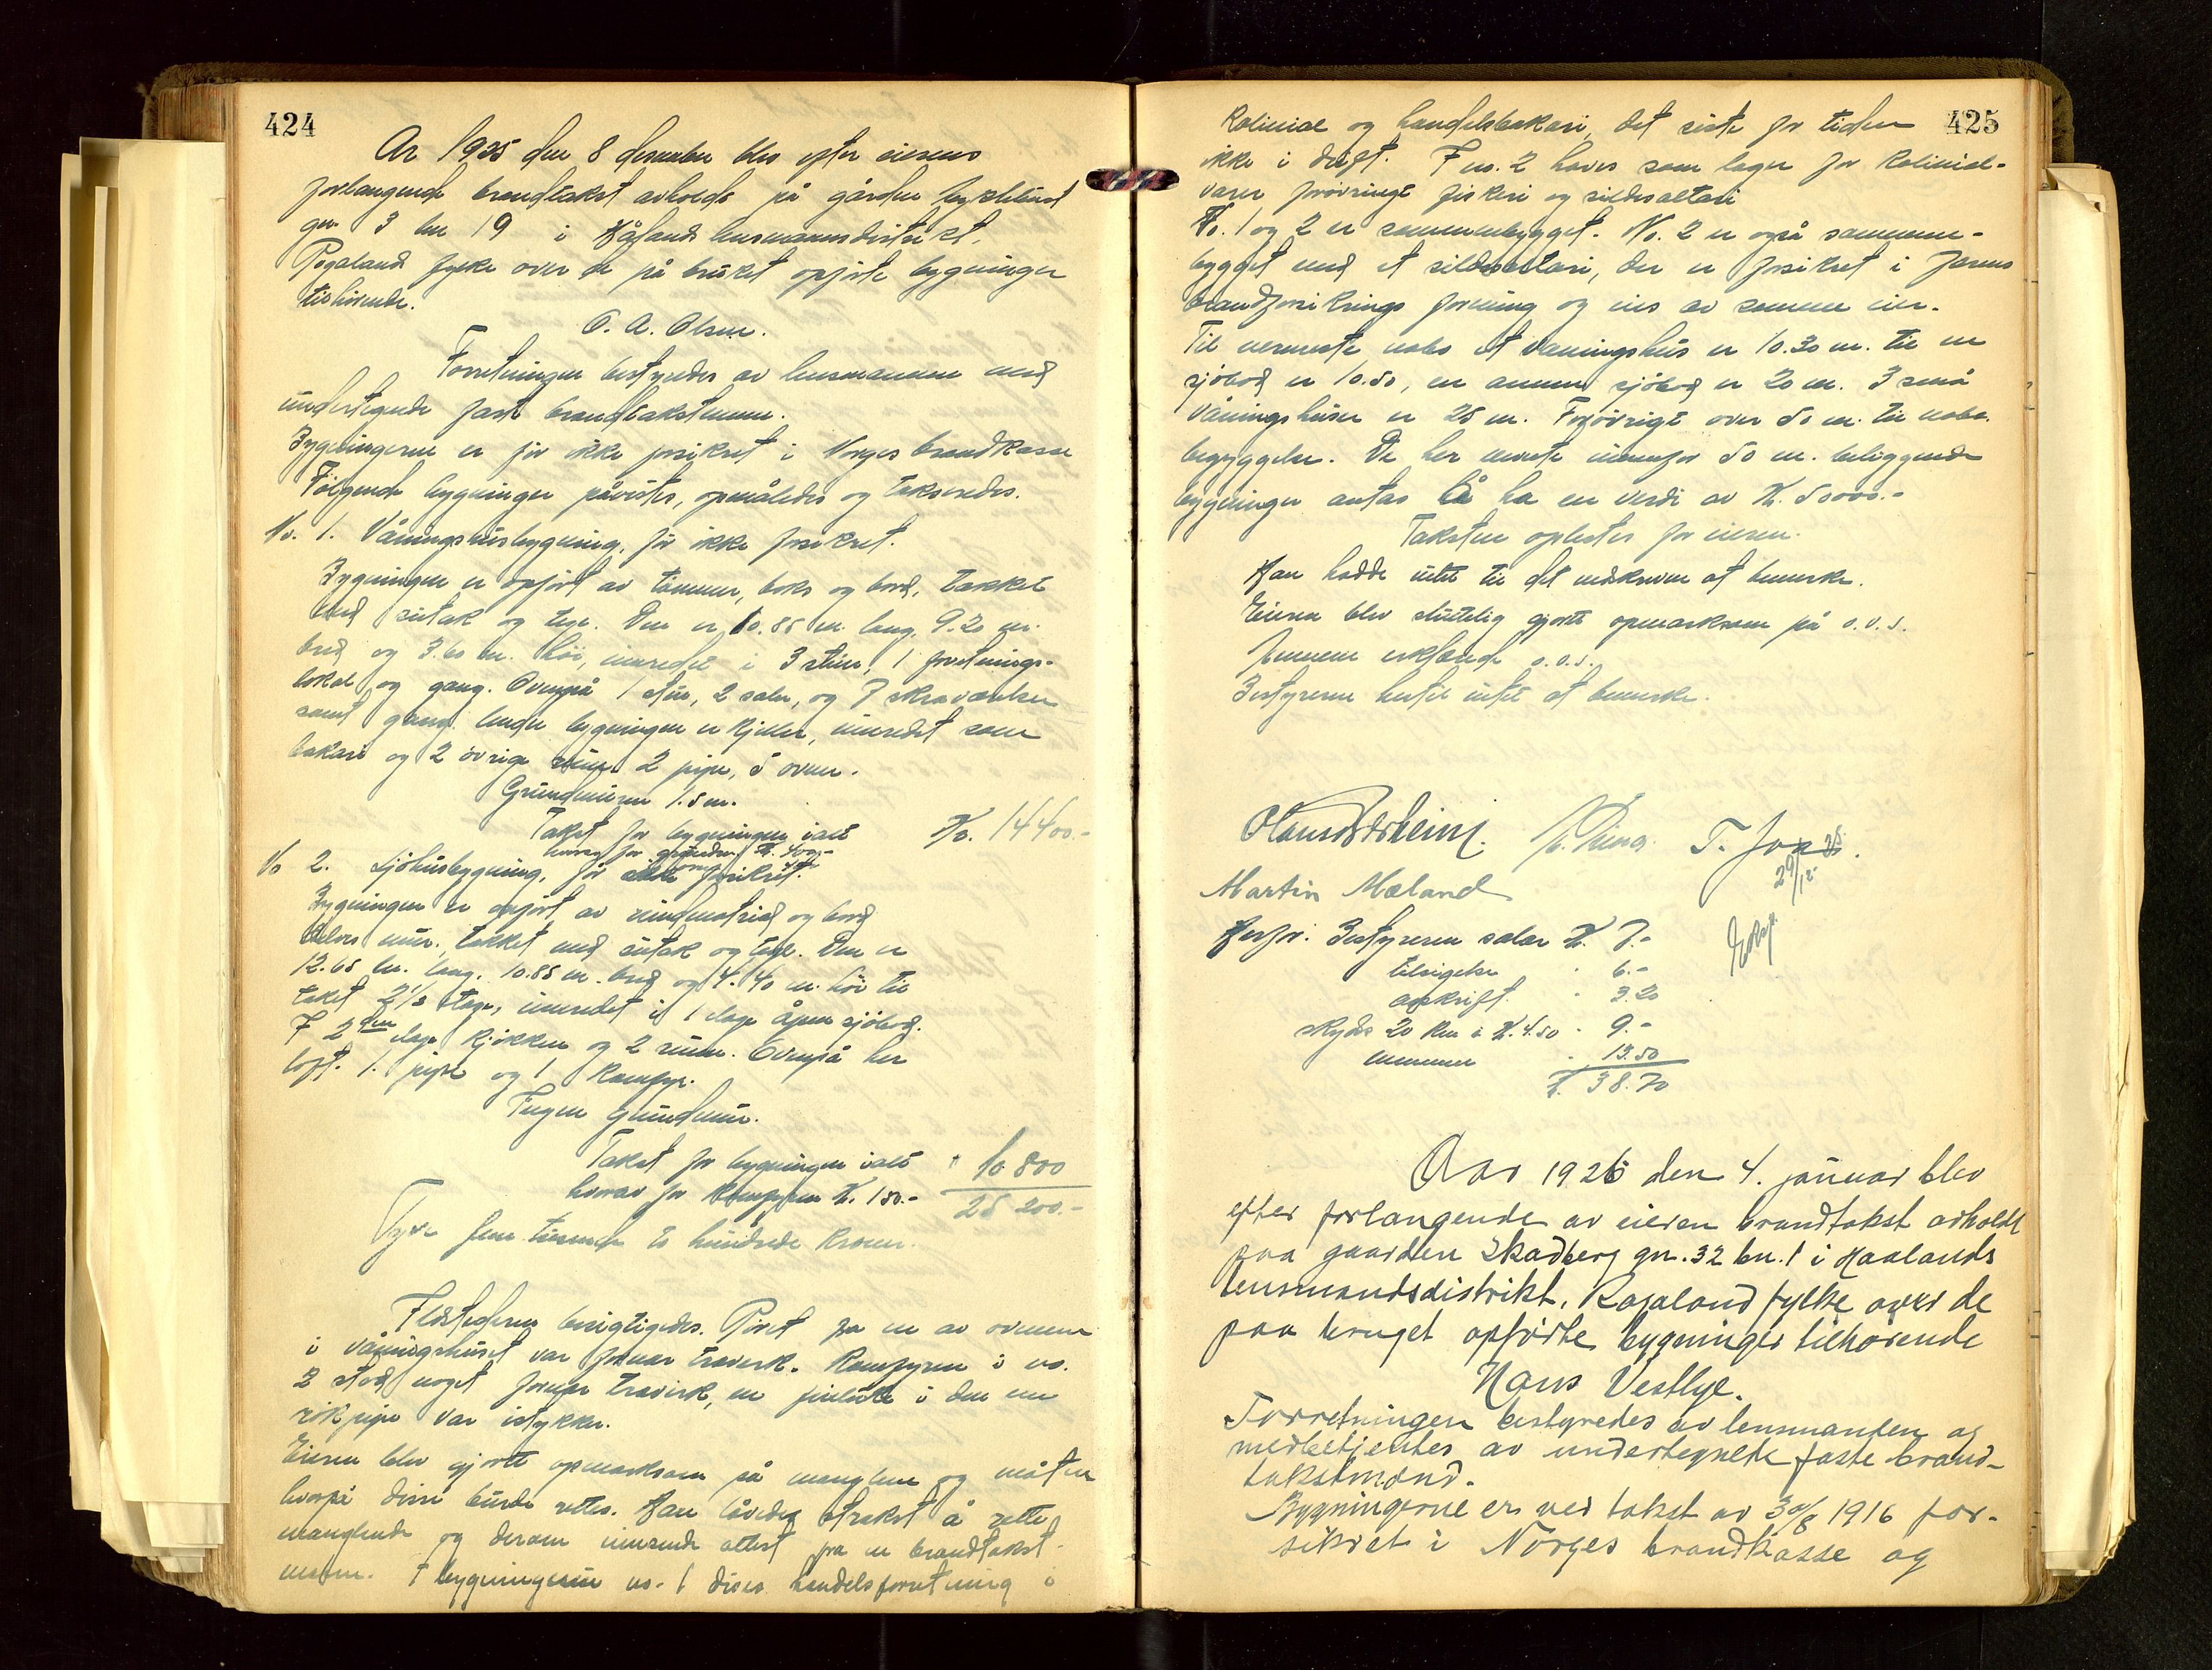 424
Ar 1925 den 8 desember blev efter eierens
forlangende brandtakst avholdt på gården
gn. 3 bn 19 i Håland lensmannsdistrikt,
Rogaland fylke over de på bruket opførte bygninger
tilhørende.
O. A. Olsen.
Forretningen bestyredes av lensmannen med
undertegnede faste brandtakstmenn.
Bygningerne er før ikke forsikret i Norges brandkasse
Følgende bygninger påvistes, opmåledes og takseredes.
No. 1. Våningshusbygning, før ikke forsikret.
Bygningen er opført av tømmer, boks og bord, tækket
med sutak og tegl. Den er 10.85 m. lang, 9.20 m.
bred og 3.60 m. høi, innredet i 3 stuer, 1 forretnings-
lokal og gang. Ovenpå 1 stue, 2 saler, og 7 skraværelser
samt gang. Under bygningen er kjeller, innredet som
bakeri og 2 øvrige rum. 2 pipe, 5 ovner.
Grundmuren 1.5 m.
Takst for bygningen ialt Kr. 14400.-
herav for grunden Kr. 400.-
No 2. Sjøhusbygning, før ikke forsikret.
Bygningen er opført av bindmatrial og bord
delvis mur, tækket med sutak og tegl. Den er
12.65 m. lang. 10.85 m. bred og 4.40 m. høi til
taket 2 1/2 etage, innredet i 1 etage åpen sjøbod.
I 2den etage kjøkken og 2 rum. Ovenpå her
loft. 1 pipe og 1 komfyr.
Ingen grundmur.
Takst for bygningen ialt " 10 800
hvorav for komfyren Kr. 150.- 25 200.-
Tyve fem tusende to hundrede kroner.
Ildstederne besigtigedes. Røret fra en av ovnene
i våningshuset var for nær traverk. Komfyren i no.
2 stod noget for nær traverk, en feieluke i den ene
rökpipe var istykker.
Eieren blev gjort opmerksom på manglene og måten
hvorpå disse burde rettes. Han lovede straks å rette
manglende og derom innsende attest fra en brandtakst-
mann. I bygningerne no. 1 drives handelsforretning i
425
Kolonial og handelsbakeri, det siste for tiden
ikke i drift. I no. 2 haves som lager for kolonial-
varer forøvrigt fiskeri og sildesalteri
No. 1 og 2 er sammenbygget. No. 2 er også sammen-
bygget med et sildesalteri, der er forsikret i Jærens
brandforsikrings forening og eies av samme eier.
Til nermeste nabo et våningshus er 10.30 m. til en
sjøbod er 10.50, en annen sjøbod er 20 m. 3 små
våningshuser er 25 m. Forøvrigt over 50 m. til nabo
bebyggelse. De her nevnte innenfor 50 m. beliggende
bygninger antas å ha en verdi av Kr. 50000.-
Taksten oplestes for eieren.
Han hadde intet til det nedskrevne at bemerke.
Eieren blev sluttelig gjort opmerksom på o.s.v.
Mennene erklærede o.s.v.
Bestyreren hertil intet at bemerke.
Martin Meland
29/12 25
Bestyreren salær Kr. 7.-
tilsigelse " 6.-
avskrift " 3.20
skyds 20 km à Kr. 4.50 " 9.-
mennene " 13.50
Kr. 38.70
Aar 1926 den 4. januar blev
efter forlangende av eieren brandtakst avholdt
paa gaarden Skadberg gn. 32 bn. 1 i Haalands
lensmandsdistrikt, Rogaland fylke over de
paa bruget opførte bygninger tilhørende
Hans Vestlye.
Forretningen bestyredes av lensmanden og
medbetjentes av undertegnede faste brand-
takstmænd.
Bygningerne er ved takst av 30/8 1916 for-
sikret i Norges brandkasse og